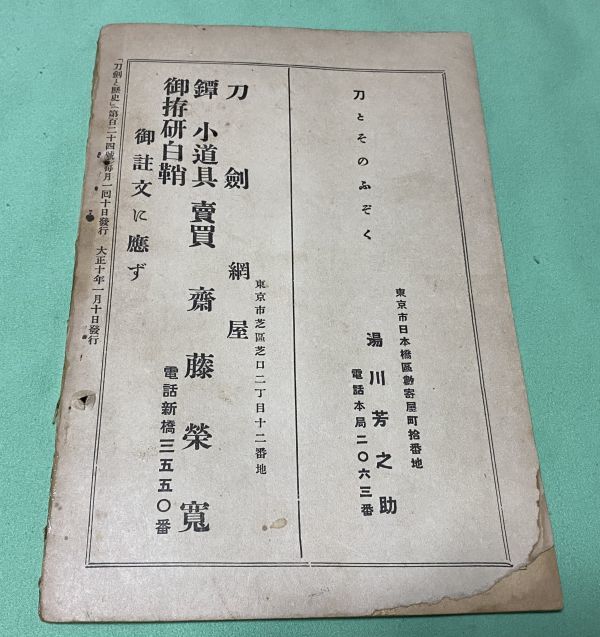 刀とそのふぞく
東京市日本橋區數寄屋町拾番地
湯川芳之助
電話本局二〇六三番
刀劍
鐔小道具賣買
御拵研白鞘
御註文に應ず
東京市芝區芝口二丁目十二番地
網屋
齋藤榮寬
電話新橋三五五〇番
「刀劍と歷史」第百二十四號每月一囘十日發行 大正十年一月十日發行